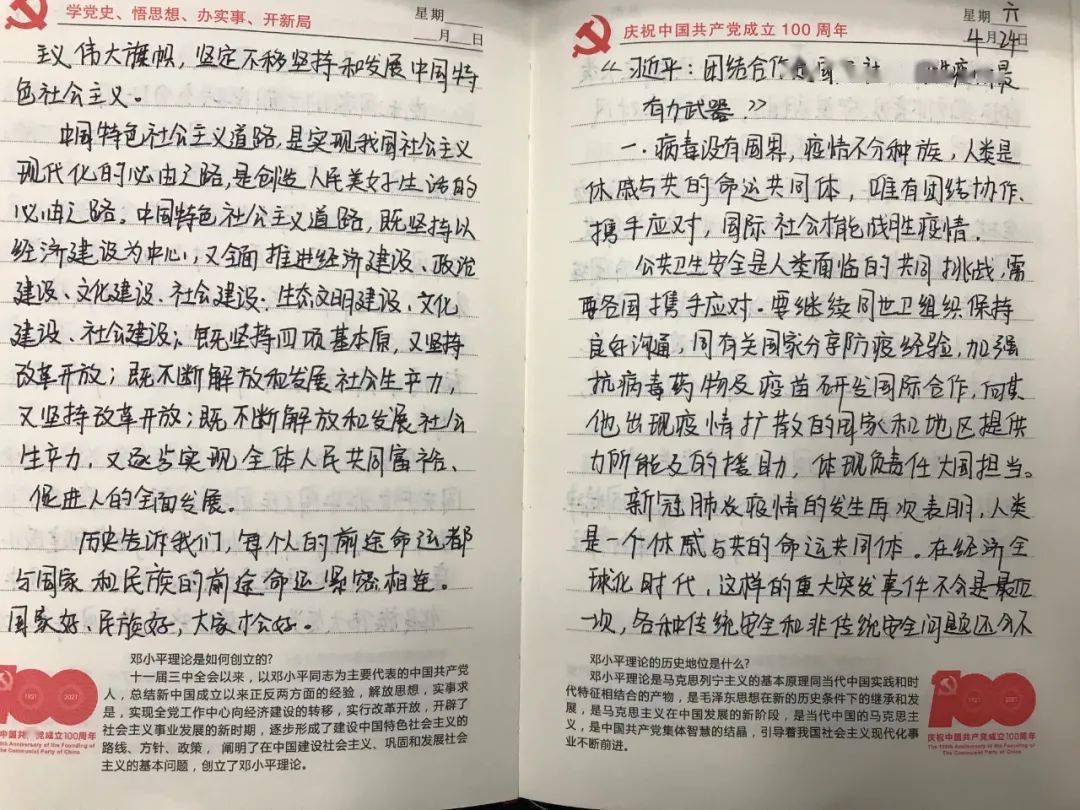 学党史、悟思想、办实事、开新局
星期
月 日
主义伟大旗帜，坚定不移坚持和发展中国特
色社会主义。
中国特色社会主义道路，是实现我国社会主义
现代化的必由之路，是创造人民美好生活的
必由之路。中国特色社会主义道路，既坚持以
经济建设为中心，又全面推进经济建设、政治
建设、文化建设、社会建设；生态文明建设、文化
建设、社会建设；既坚持四项基本原，又坚持
改革开放；既不断解放和发展社会生产力，
又坚持改革开放；既不断解放和发展社会
生产力，又逐步实现全体人民共同富裕、
促进人的全面发展。
历史告诉我们，每个人的前途命运都
与国家和民族的前途命运紧密相连。
国家好、民族好，大家才会好。
邓小平理论是如何创立的？
十一届三中全会以来，以邓小平同志为主要代表的中国共产党
人，总结新中国成立以来正反两方面的经验，解放思想，实事求
是，实现全党工作中心向经济建设的转移，实行改革开放，开辟了
社会主义事业发展的新时期，逐步形成了建设中国特色社会主义的
路线、方针、政策，阐明了在中国建设社会主义、巩固和发展社会
主义的基本问题，创立了邓小平理论。
100
1921 2021
中国共 党成立100周年
The 100th Anniversary of the Founding of
The Communist Party of China
庆祝中国共产党成立100周年
星期 六
4月24日
《习近平：团结合作 最
有力武器》
一．病毒没有国界，疫情不分种族，人类是
休戚与共的命运共同体，唯有团结协作、
携手应对，国际社会才能战胜疫情．
公共卫生安全是人类面临的共同挑战，需
要各国携手应对．要继续同世卫组织保持
良好沟通，同有关国家分享防疫经验，加强
抗病毒药物及疫苗研发国际合作，向其
他出现疫情扩散的国家和地区提供
力所能及的援助，体现负责任大国担当。
新冠肺炎疫情的发生再次表明，人类
是一个休戚与共的命运共同体．在经济全
球化时代，这样的重大突发事件不会是最后
一次，各种传统安全和非传统安全问题还会不
邓小平理论的历史地位是什么？
邓小平理论是马克思列宁主义的基本原理同当代中国实践和时
代特征相结合的产物，是毛泽东思想在新的历史条件下的继承和发
展，是马克思主义在中国发展的新阶段，是当代中国的马克思主
义，是中国共产党集体智慧的结晶，引导着我国社会主义现代化事
业不断前进。
100
1921 2021
庆祝中国共产党成立100周年
The 100th Anniversary of the Founding of
The Communist Party of China